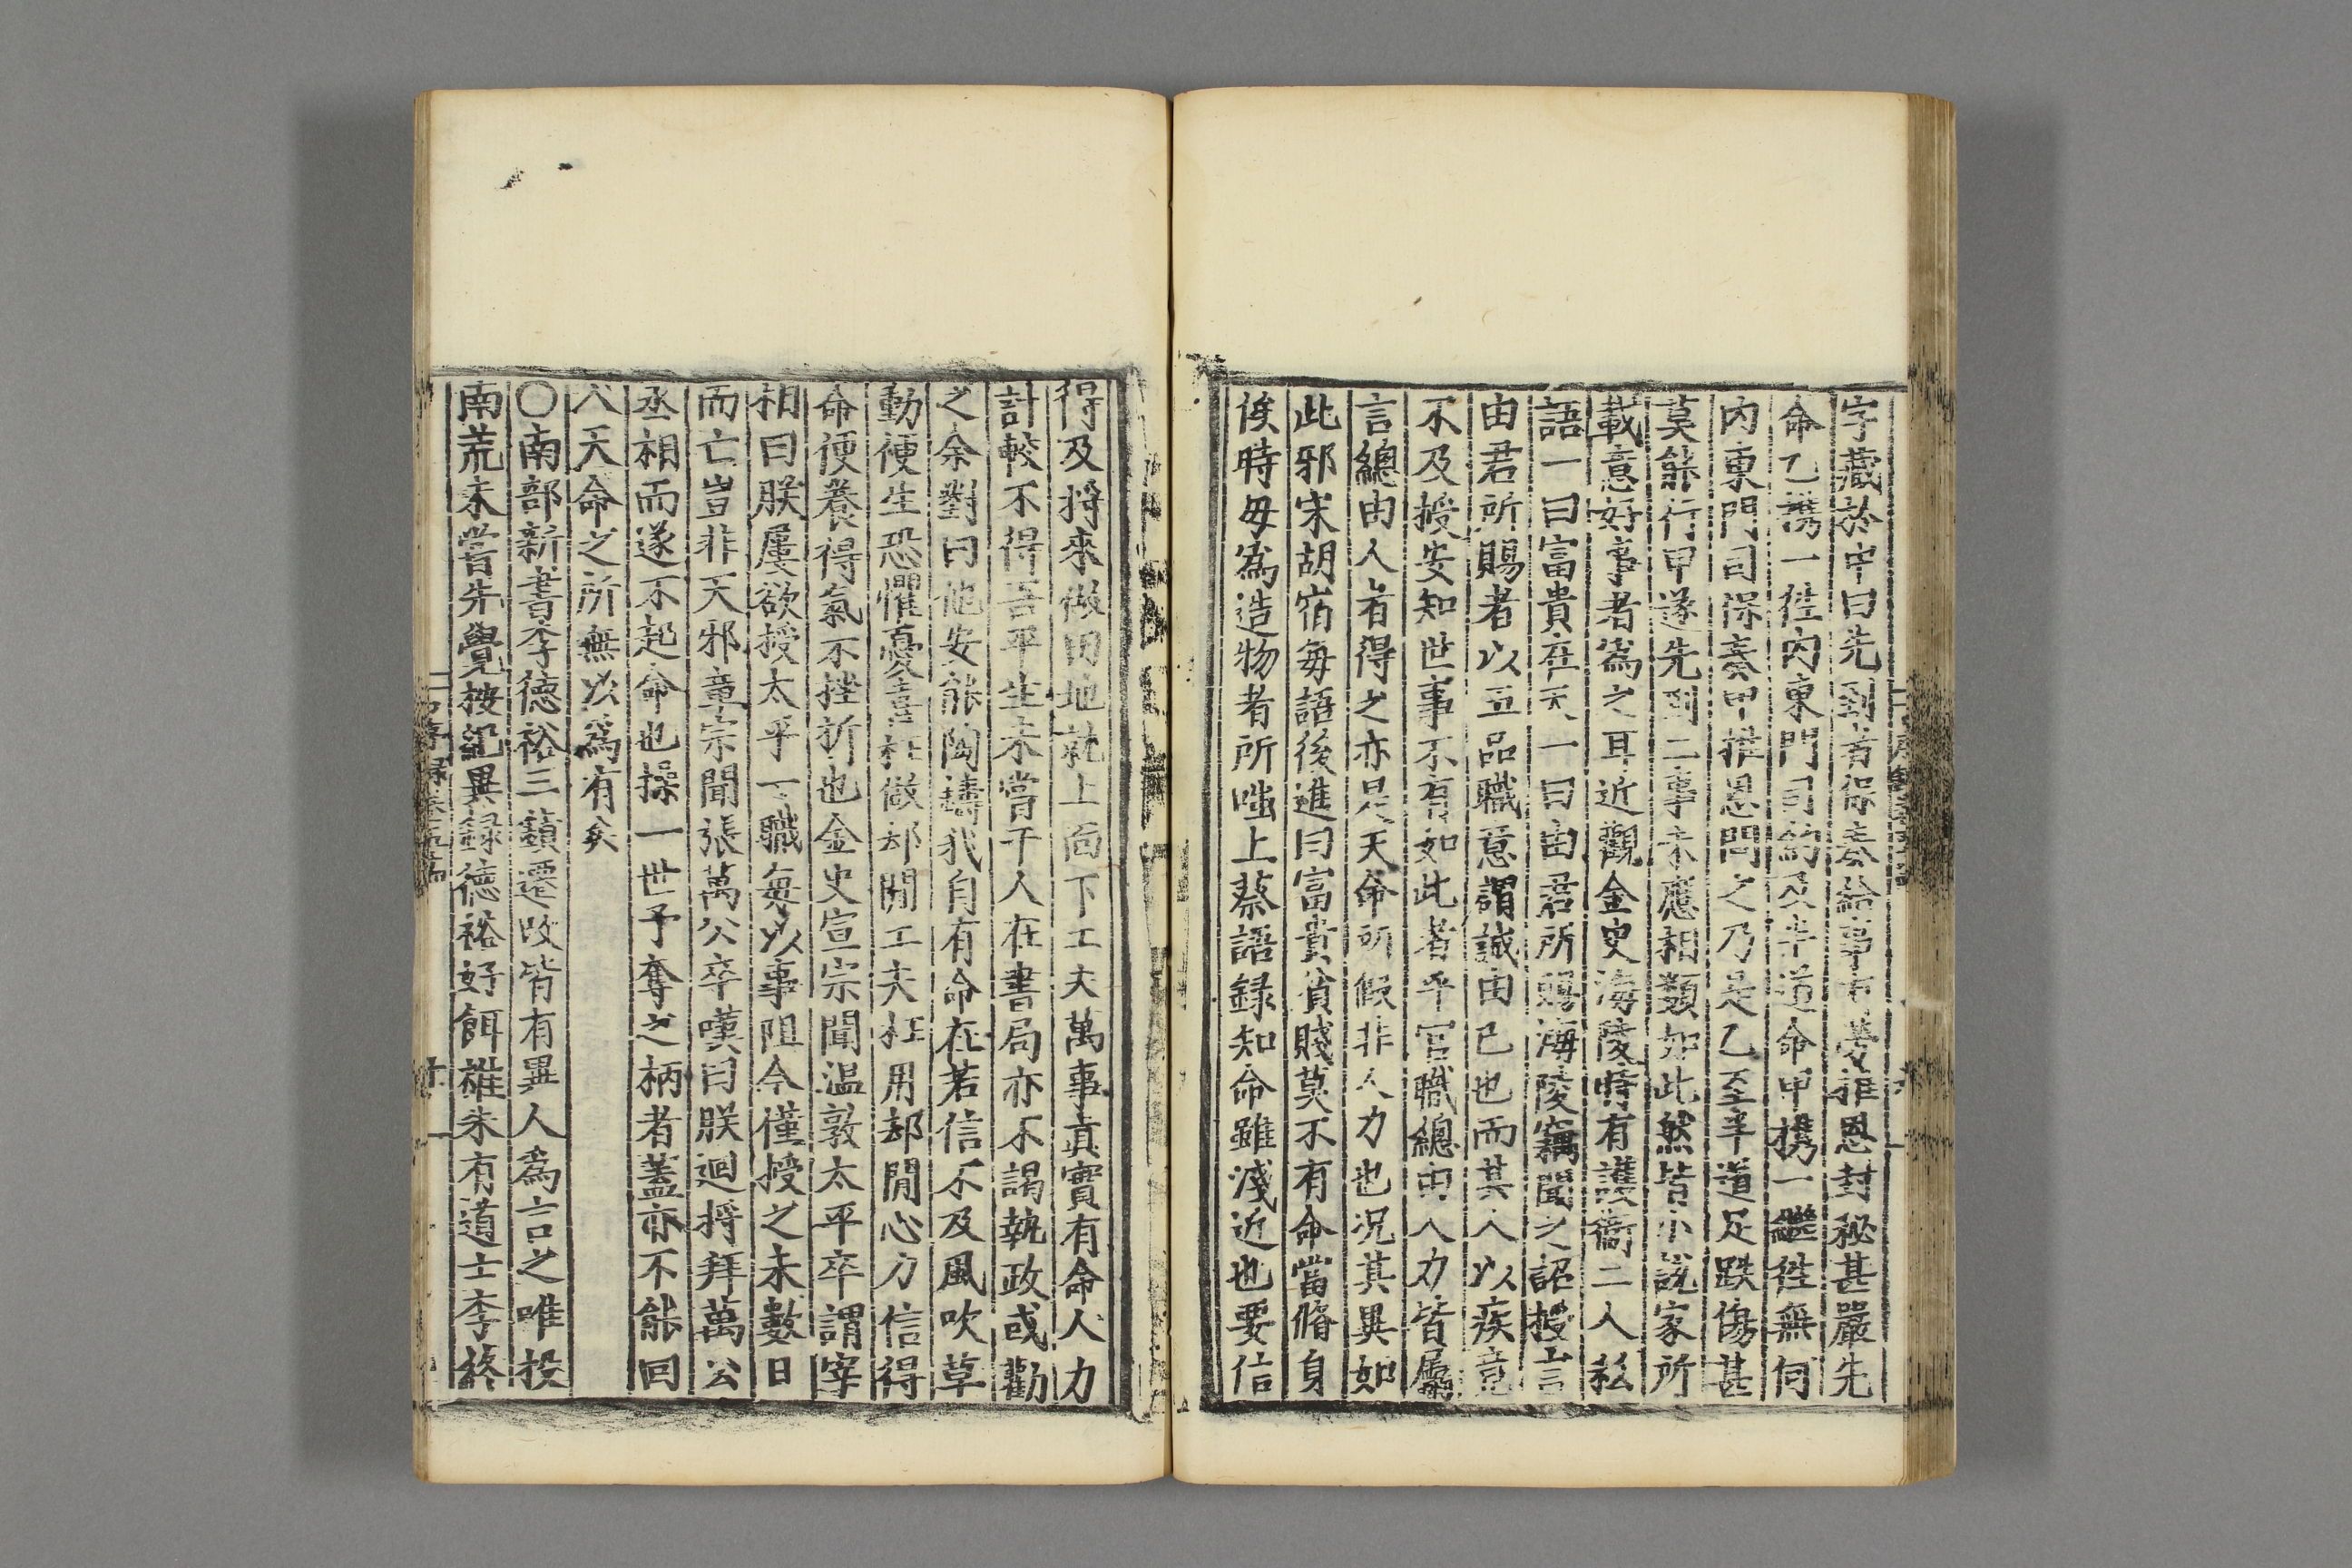 字藏於中曰先到者保奏給事有勞推恩封秘甚嚴先
命乙攜一徃內東門司約及半道命甲携一繼徃無何
內東門司保奏甲推恩問之乃是乙至半道足跌傷甚
莫能行甲遂先到二事未應相類如此然皆小說家所
載意好事者爲之耳近觀金史海陵時有護衞二人私
語一曰富貴在天一曰由君所賜海陵竊聞之詔授言
由君所賜者以五品職意謂誠由己也而其人以疾竟
不及授安知世事不有如此者乎官職總由人力皆屬
言總由人者得之亦是天命所假非人力也况其異如
此邪宋胡宿每語後進曰富貴貧賤莫不有命當脩身
俟時毋爲造物者所嗤上蔡語録知命雖淺近也要信
得及將來做田地就上面下工夫萬事真實有命人力
計較不得吾平生未嘗干人在書局亦不謁執政或勸
之余對曰他安能陶鑄我自有命在若信不及風吹草
動便生恐懼憂喜枉做却閒工夫枉用却閒心力信得
命便養得氣不挫折也金史宣宗聞温敦太平卒謂宰
相曰朕屢欲授太平一職每以事阻今僅授之未數日
而亡豈非天邪章宗聞張萬公卒嘆曰朕迴將拜萬公
丞相而遂不起命也操一世予奪之柄者蓋亦不能回
人天命之所無以爲有矣
〇南部新書李德裕三鎮遷改皆有異人爲言之唯投
南荒未嘗先覺按紀異録德裕好餌雄朱有道士李終